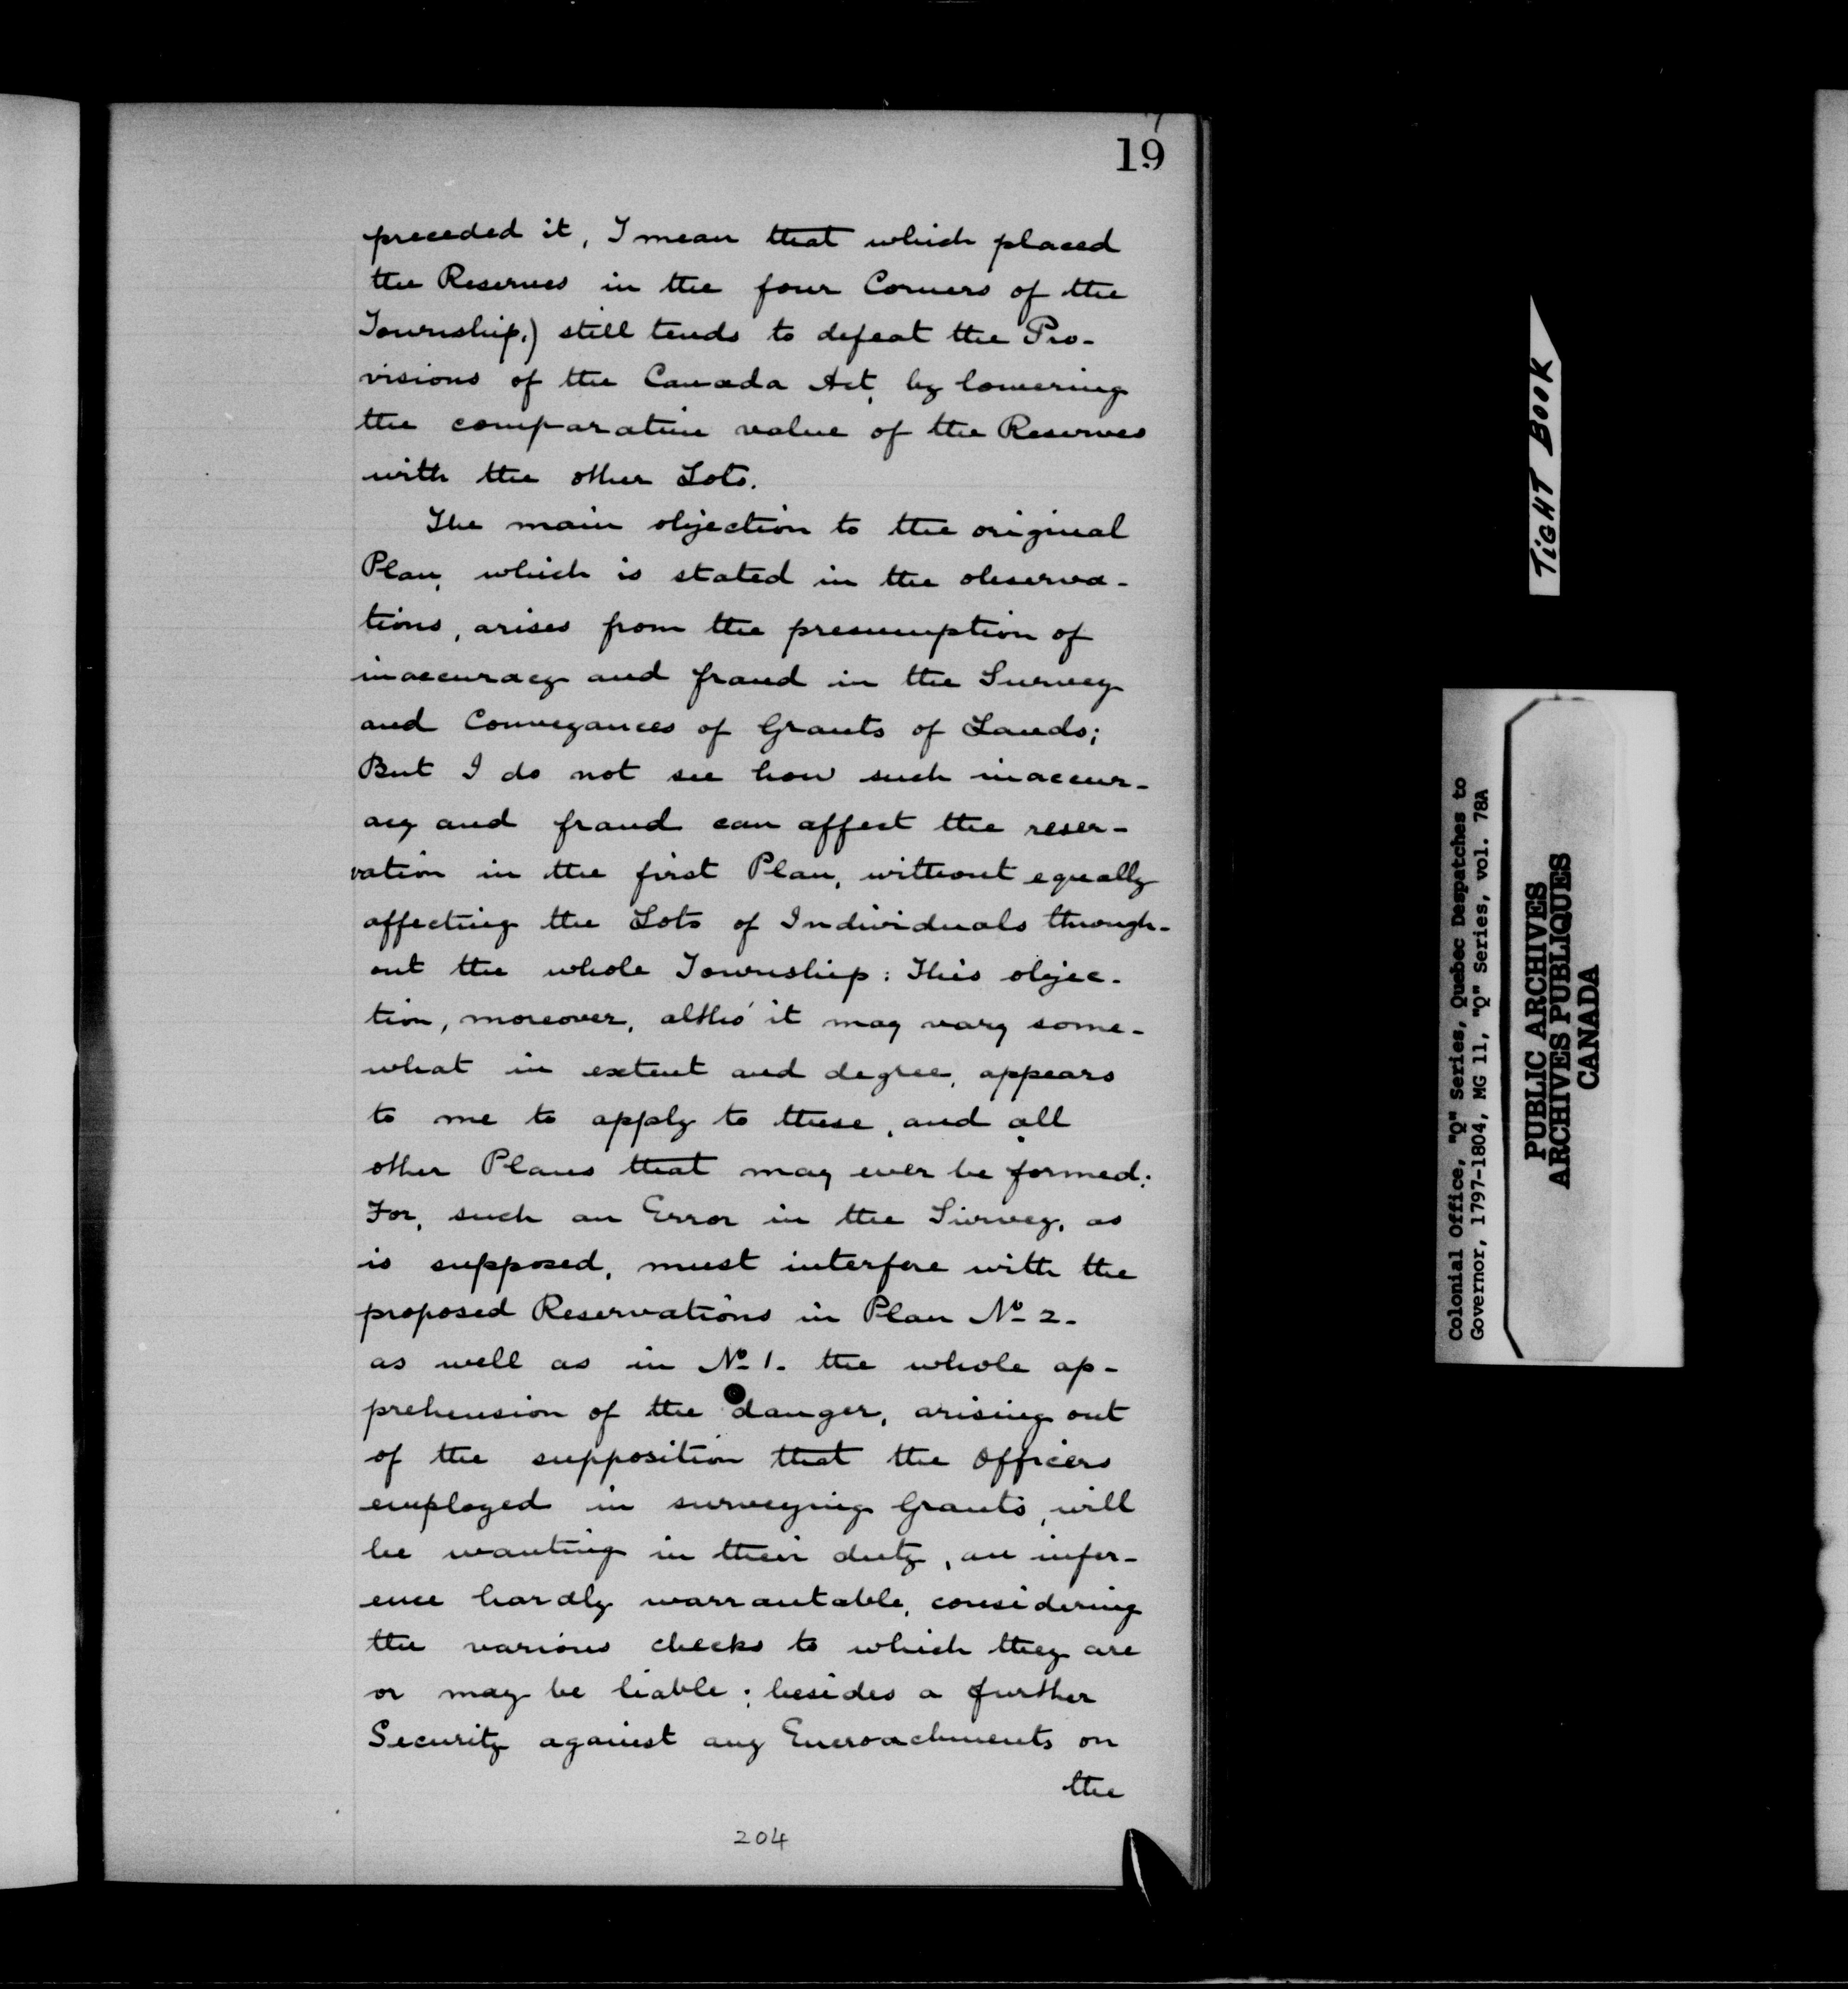 19
preceded it, I mean that which placed
the Reserves in the four Corners of the
Township.) still tends to defeat the Pro-
visions of the Canada Act, by lowering
the comparative value of the Reserves
with the other Lots.
The main objection to the original
Plan, which is stated in the observa-
tions, arises from the presumption of
inaccuracy and fraud in the Survey
and Conveyances of Grants of Lands;
But I do not see how such inaccur-
acy and fraud can affect the reser-
vation in the first Plan, without equally
affecting the Lots of Individuals through-
out the whole Township: This objec-
tion, moreover, altho' it may vary some-
what in extent and degree, appears
to me to apply to these, and all
other Plans that may ever be formed:
For, such an Error in the Survey, as
is supposed, must interfere with the
proposed Reservations in Plan No. 2.
as well as in No. 1. the whole ap-
prehension of the danger, arising out
of the supposition that the Officers
employed in surveying Grants, will
be wanting in their duty, an infer-
ence hardly warrantable, considering
the various checks to which they are
or may be liable; besides a further
Security against any Encroachments on
the
204
TIGHT BOOK
Colonial Office, "Q" Series, Quebec Despatches to
Governor, 1797-1804, MG 11, "Q" Series, vol. 78A
PUBLIC ARCHIVES
ARCHIVES PUBLIQUES
CANADA